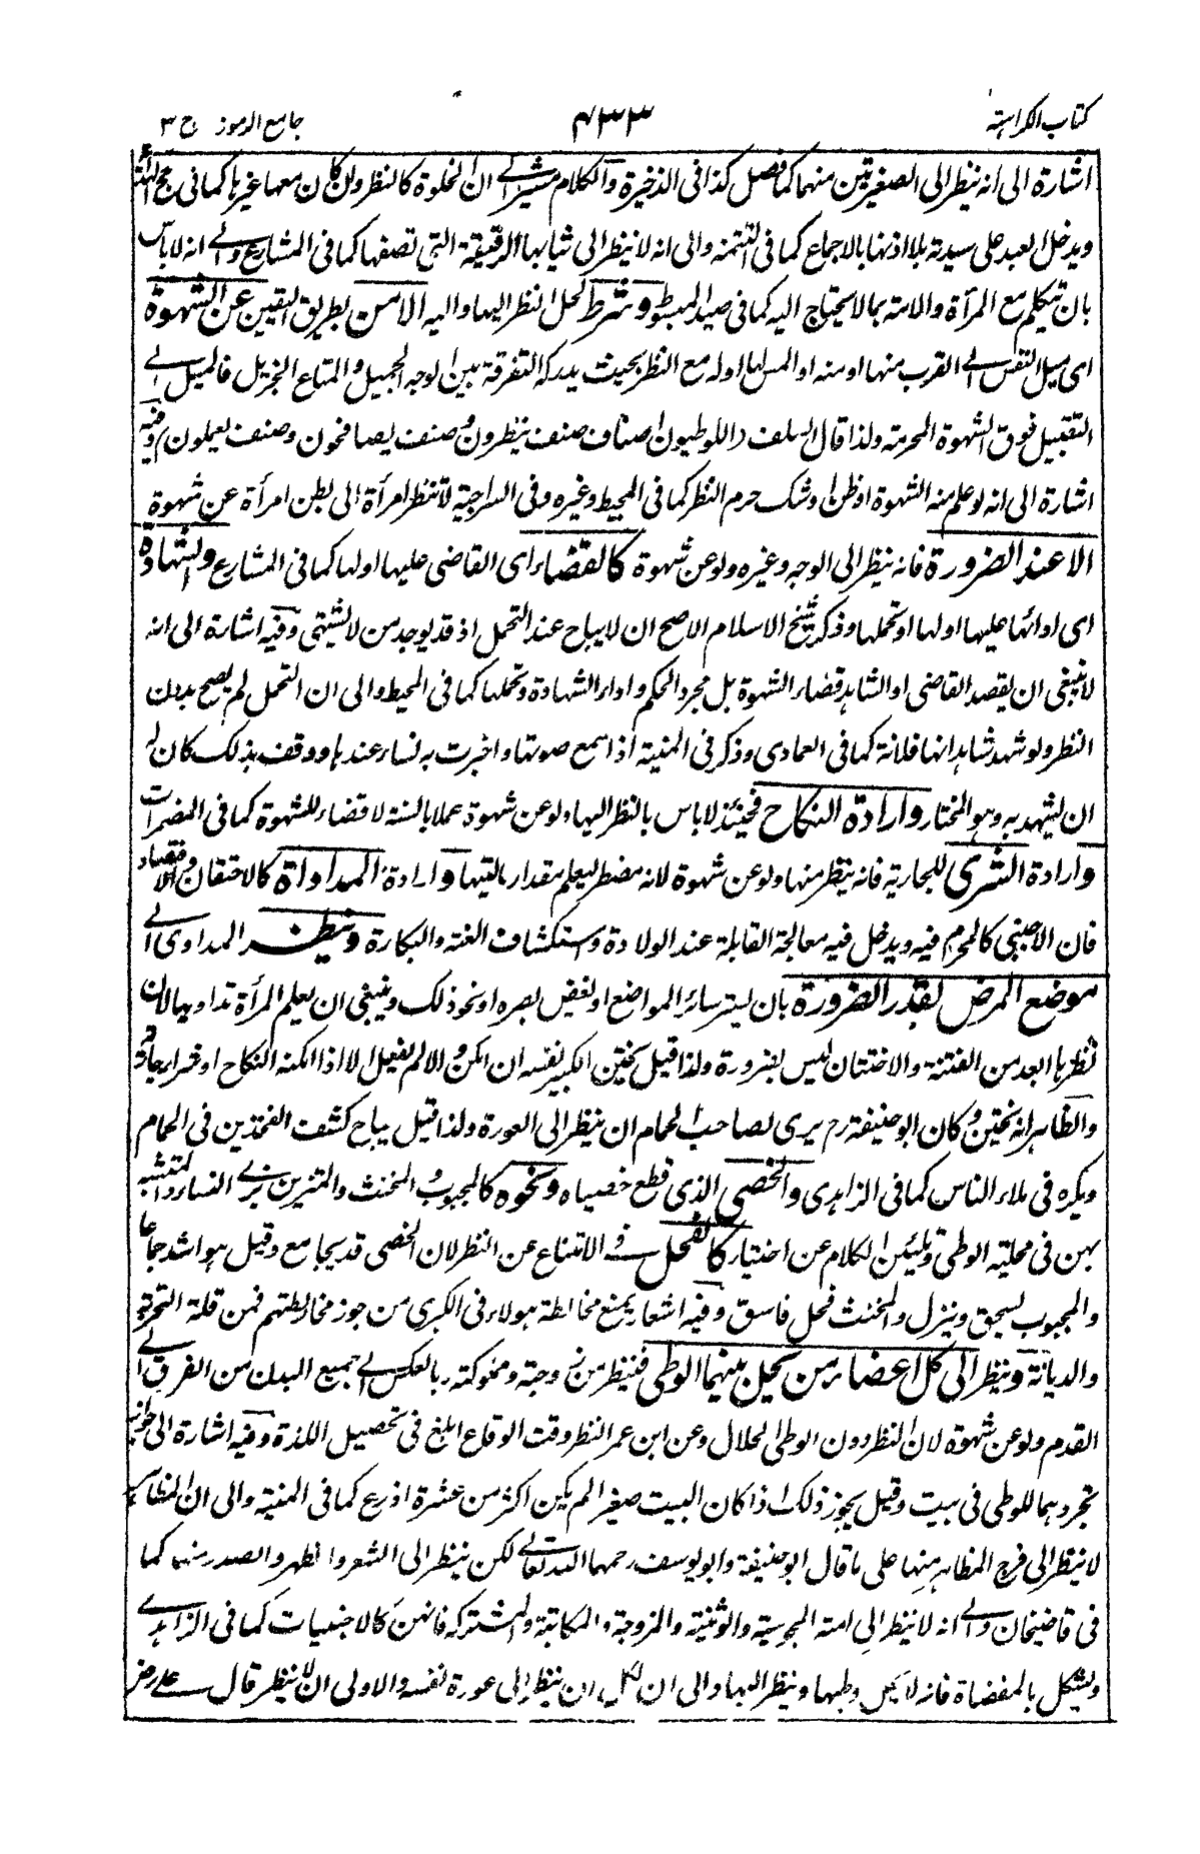 كتاب الكراهية ٤٣٣ جامع الرموز ج ٣
اشارة الى انه ينظر الى الصغيرتين منهما كما فصل كذا فى الذخيرة والكلام مشير الى ان الخلوة كالنظر ولو كان معها غيرها كما فى
ويدخل العبد على سيدته بلا اذنها بالاجماع كما فى التتمة والى انه لا ينظر الى ثيابها الرقيقة التى تصفها كما فى المشارع والى انه لا باس
بان يتكلم مع المرأة والامة بما لا يحتاج اليه كما فى صيد المبسوط وشرط لحل النظر اليها واليه الامن بطريق اليقين عن الشهوة
اى ميل النفس الى القرب منها او منه او المس لها او له مع النظر بحيث يدرك التفرقة بين الوجه الجميل والمتاع الجزيل فالميل الى
التقبيل فوق الشهوة المحرمة ولذا قال السلف اللوطيون اصناف صنف ينظرون وصنف يصافحون وصنف يعملون وفيه
اشارة الى انه لو علم منه الشهوة او ظن او شك حرم النظر كما فى المحيط وغيره وفى السراجية لا تنظر امرأة الى بطن امرأة عن شهوة
الا عند الضرورة فانه ينظر الى الوجه وغيره ولو عن شهوة كالقضاء اى القاضى عليها او لها كما فى المشارع والشهادة
اى ادائها عليها او لها او تحملها وذكر شيخ الاسلام الاصح ان لا يباح عند التحمل اذ قد يوجد من لا يشتهى وفيه اشارة الى انه
لا ينبغى ان يقصد القاضى او الشاهد قضاء الشهوة بل مجرد الحكم واداء الشهادة وتحملها كما فى المحيط والى ان التحمل لم يصح بدون
النظر ولو شهد شاهد انها فلانة كما فى العمادى وذكر فى المنية اذا سمع صوتها واخبرت به نساء عندها ووقف بذلك كان له
ان يشهد به وهو المختار وارادة النكاح فحينئذ لا باس بالنظر اليها ولو عن شهوة عملا بالسنة لا قضاء للشهوة كما فى المضمرات
وارادة الشرى للجارية فانه ينظر منها ولو عن شهوة لانه مضطر ليعلم مقدار ماليتها وارادة المداواة كالاحتقان والافتصاد
فان الاجنبى كالمحرم فيه ويدخل فيه معالجة القابلة عند الولادة واستكشاف العنة والبكارة وينظر المداوى الى
موضع المرض بقدر الضرورة بان يستر سائر المواضع او يغض بصره او نحو ذلك وينبغى ان يعلم المرأة تداويها لان
نظرها ابعد من الفتنة والاختتان ليس بضرورة ولذا قيل يختن الكبير نفسه ان امكن والا لم يفعل الا اذا امكنه النكاح او شراء جارية
والظاهر انه يختن وكان ابو حنيفة رح يرى لصاحب الحمام ان ينظر الى العورة ولذا قيل يباح كشف الفخذين فى الحمام
ويكره فى ملاء الناس كما فى الزاهدى والخصى الذى قطع خصياه ونحوه كالمجبوب والمخنث والمتزين بزى النساء والمتشبه
بهن فى محلية الوطى وتليين الكلام عن اختيار كالفحل فى الامتناع عن النظر لان الخصى قد يجامع وقيل هو اشد جماعا
والمجبوب يسحق وينزل والمخنث فحل فاسق وفيه اشعار بمنع مخالطة هؤلاء وفى الكبرى من جوز مخالطتهم فمن قلة التجربة
والديانة وينظر الى كل اعضاء من يحل بينهما الوطى فينظر من زوجته ومملوكته وبالعكس الى جميع البدن من الفرق الى
القدم ولو عن شهوة لان النظر دون الوطى الحلال وعن ابن عمر النظر وقت الوقاع ابلغ فى تحصيل اللذة وفيه اشارة الى جواز
تجردهما للوطى فى بيت وقيل يجوز ذلك اذا كان البيت صغيرا لم يكن اكثر من عشرة اذرع كما فى المنية والى ان المظاهر
لا ينظر الى فرج المظاهر منها على ما قال ابو حنيفة وابو يوسف رحمهما الله تعالى لكن ينظر الى الشعر والظهر والصدر منها كما
فى قاضيخان والى انه لا ينظر الى امته المجوسية والوثنية والمزوجة والمكاتبة والمشتركة فانهن كالاجنبيات كما فى الزاهدى
ويشكل بالمفضاة فانه لا يحل وطيها وينظر اليها والى ان لكل ان ينظر الى عورة نفسه والاولى ان لا ينظر قال على رض